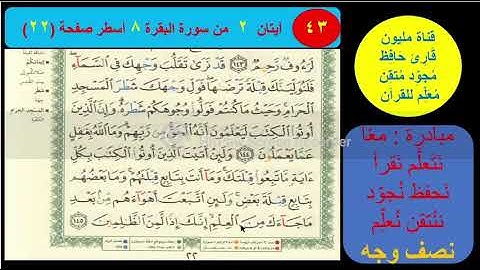 ٤٣
أيتان ٢ من سورة البقرة ٨ أسطر صفحة (٢٢)
قناة مليون
قارئ حافظ
مُجوّد مُتقن
مُعلّم للقرآن
مبادرة : معًا
نَتَعلّم نَقرأ
نَحفظ نُجوّد
نَتْقن نُعلّم
نصف وجه
لَرَءُوفٌ رَّحِيمٌ ١٤٣ قَدْ نَرَىٰ تَقَلُّبَ وَجْهِكَ فِي السَّمَاءِ
فَلَنُوَلِّيَنَّكَ قِبْلَةً تَرْضَىٰهَا فَوَلِّ وَجْهَكَ شَطْرَ الْمَسْجِدِ
الْحَرَامِ وَحَيْثُ مَا كُنتُمْ فَوَلُّوا وُجُوهَكُمْ شَطْرَهُ وَإِنَّ الَّذِينَ
أُوتُوا الْكِتَٰبَ لَيَعْلَمُونَ أَنَّهُ الْحَقُّ مِن رَّبِّهِمْ وَمَا اللَّهُ بِغَٰفِلٍ
عَمَّا يَعْمَلُونَ ١٤٤ وَلَئِنْ أَتَيْتَ الَّذِينَ أُوتُوا الْكِتَٰبَ بِكُلِّ
ءَايَةٍ مَّا تَبِعُوا قِبْلَتَكَ وَمَا أَنتَ بِتَابِعٍ قِبْلَتَهُمْ وَمَا بَعْضُهُم
بِتَابِعٍ قِبْلَةَ بَعْضٍ وَلَئِنِ اتَّبَعْتَ أَهْوَاءَهُم مِّن بَعْدِ
مَا جَاءَكَ مِنَ الْعِلْمِ إِنَّكَ إِذًا لَّمِنَ الظَّٰلِمِينَ ١٤٥
٢٢